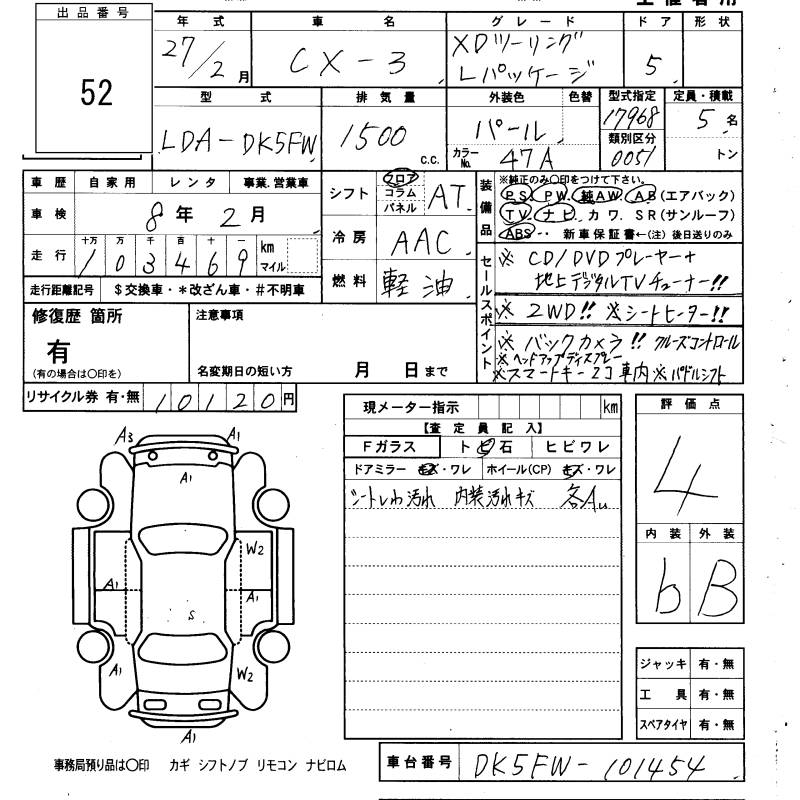 出品番号
52
年式 車名 グレード ドア 形状
27/2月 CX-3 XDツーリング Lパッケージ 5
型式 排気量 外装色 色替 型式指定 定員・積載
LDA-DK5FW 1500 c.c. パール 17968 5名
カラーNo. 47A 類別区分 0051 トン
車歴 自家用 レンタ 事業.営業車
車検 8年2月
走行 十万 万 千 百 十 一 km マイル
103469
走行距離記号 $交換車・*改ざん車・#不明車
シフト フロア コラム パネル AT
冷房 AAC
燃料 軽油
装備品
※純正のみ〇印をつけて下さい。
PS. PW. 純AW AB(エアバック)
TV ナビ カワ. SR(サンルーフ)
ABS・・ 新車保証書←(注) 後日送りのみ
セールスポイント
※ CD/DVDプレーヤー+
地上デジタルTVチューナー!!
※ 2WD!! ※シートヒーター!!
※バックカメラ!! クルーズコントロール
※ヘッドアップディスプレー
※スマートキー2コ 車内 ※パドルシフト
修復歴 箇所
有
(有の場合は〇印を)
注意事項
名変期日の短い方 月 日まで
リサイクル券 有・無 10120円
現メーター指示 km
【査定員記入】
Fガラス ト ビ 石 ヒビワレ
ドアミラー キズ・ワレ ホイール(CP) キズ・ワレ
シートしわ汚れ 内装汚れキズ 各AU
評価点
4
内装 外装
b B
A3 A1
A1
W2
A1 A1
S
A1 W2
A1
ジャッキ 有・無
工具 有・無
スペアタイヤ 有・無
事務局預り品は〇印 カギ シフトノブ リモコン ナビロム
車台番号 DK5FW-101454